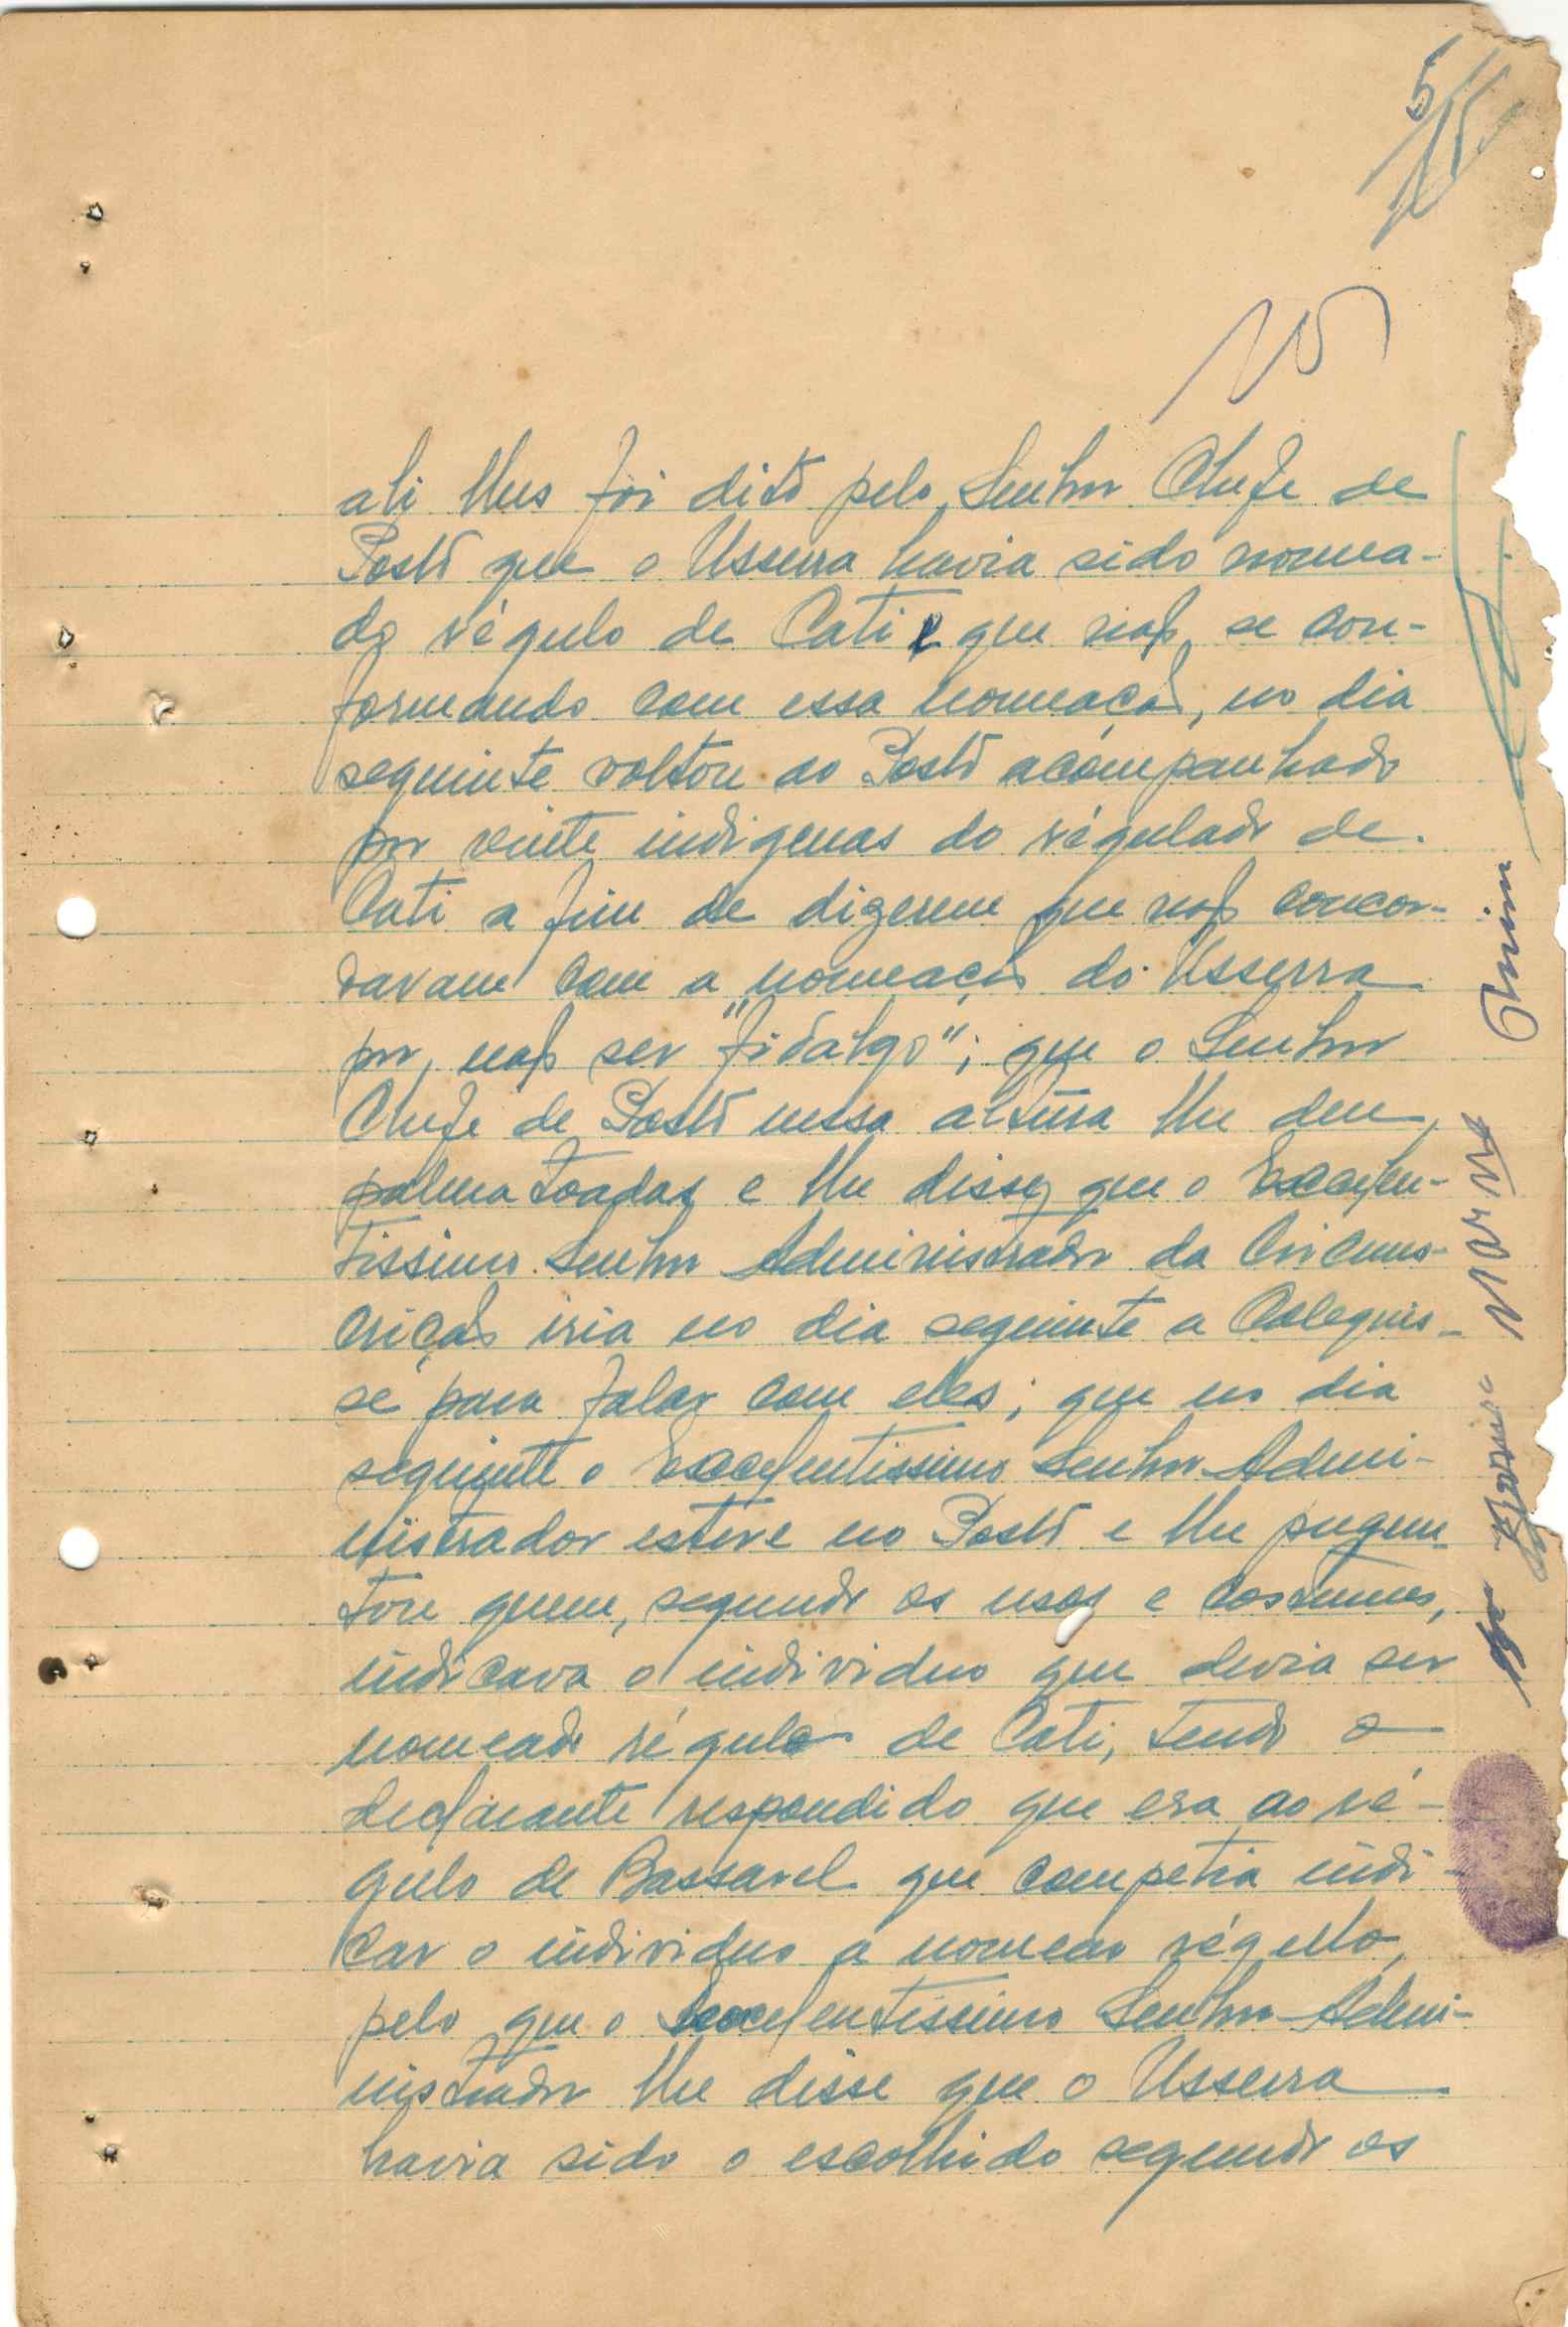 5
15
ali lhes foi dito pelo Senhor Chefe de
Posto que o Usserra havia sido nomea-
do régulo de Cati e que não se con-
formando com essa nomeação, no dia
seguinte voltou ao Posto acompanhado
por vinte indigenas do régulado de
Cati a fim de dizerem que não concor-
davam com a nomeação do Usserra
por não ser "fidalgo"; que o Senhor
Chefe de Posto nessa altura lhe deu
palmatoadas e lhe disse que o Excelen-
tissimo Senhor Administrador da Circuns-
crição iria no dia seguinte a Calequis-
se para falar com eles; que no dia
seguinte o Excelentissimo Senhor Admi-
nistrador esteve no Posto e lhe pregun-
tou quem, segundo os usos e costumes,
indicava o individuo que devia ser
nomeado régulo de Cati, tendo o
declarante respondido que era ao ré-
gulo de Bassarel que competia indi-
car o individuo a nomear régulo,
pelo que o Excelentissimo Senhor Admi-
nistrador lhe disse que o Usserra
havia sido o escolhido segundo os